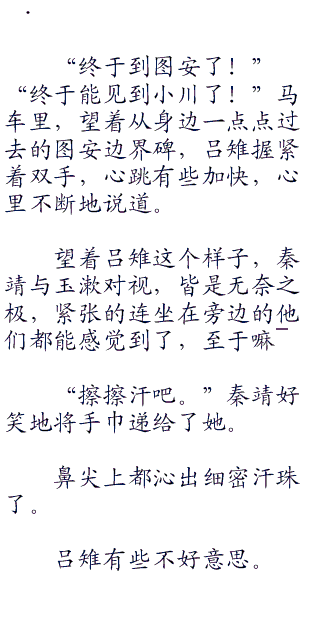 “终于到图安了！”
“终于能见到小川了！”马
车里，望着从身边一点点过
去的图安边界碑，吕雉握紧
着双手，心跳有些加快，心
里不断地说道。
望着吕雉这个样子，秦
靖与玉漱对视，皆是无奈之
极，紧张的连坐在旁边的他
们都能感觉到了，至于嘛
“擦擦汗吧。”秦靖好
笑地将手巾递给了她。
鼻尖上都沁出细密汗珠
了。
吕雉有些不好意思。